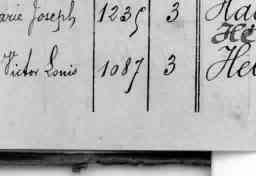 arie Joseph 1235 3 Ha
Victor Louis 1087 3 He